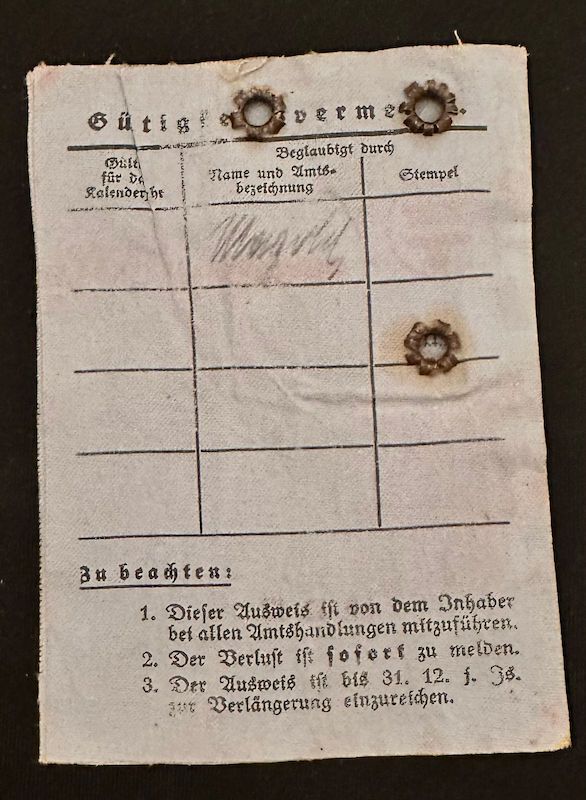 Beglaubigt durch
für
Name und Amts-
bezeichnung
Stempel
Zu beachten:
1. Dieser Ausweis ist von dem Inhaber
bei allen Amtshandlungen mitzuführen.
2. Der Verlust ist sofort zu melden.
3. Der Ausweis ist bis 31. 12. j. Js.
zur Verlängerung einzureichen.